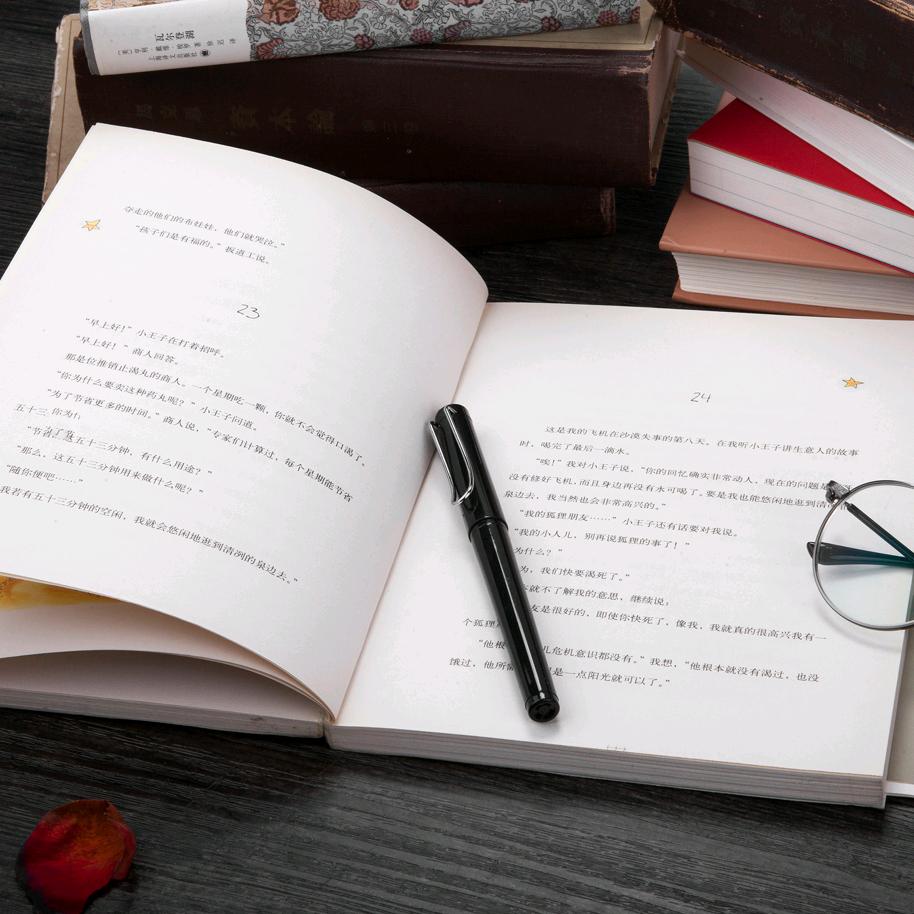 瓦尔登湖
[美] 亨利·戴维·梭罗 著 徐迟 译
上海译文出版社
資本論
夺走的他们的布娃娃，他们就哭泣。”
“孩子们是有福的。”扳道工说。
23
“早上好！”小王子在打着招呼。
“早上好！”商人回答。
那是位推销止渴丸的商人。一个星期吃一颗，你就不会觉得口渴了。
“你为什么要卖这种药丸呢？”小王子问道。
“为了节省更多的时间。”商人说，“专家们计算过，每个星期能节省
五十三
“节省 这五十三分钟，有什么用途？”
“那么，这五十三分钟用来做什么呢？”
“随你便吧……”
我若有五十三分钟的空闲，我就会悠闲地逛到清冽的泉边去。”
24
这是我的飞机在沙漠失事的第八天。在我听小王子讲生意人的故事
时，喝完了最后一滴水。
“唉！”我对小王子说，“你的回忆确实非常动人，现在的问题是
没有修好飞机，而且身边再没有水可喝了。要是我也能悠闲地逛到清
泉边去，我当然也会非常高兴的。”
“我的狐狸朋友……”小王子还有话要对我说。
“我的小人儿，别再说狐狸的事了！”
为什么？”
为，我们快要渴死了。”
就不了解我的意思，继续说：
友是很好的，即使你快死了，像我，我就真的很高兴我有一
个狐狸
“他根 儿危机意识都没有。”我想，“他根本就没有渴过，也没
饿过，他所 是一点阳光就可以了。”